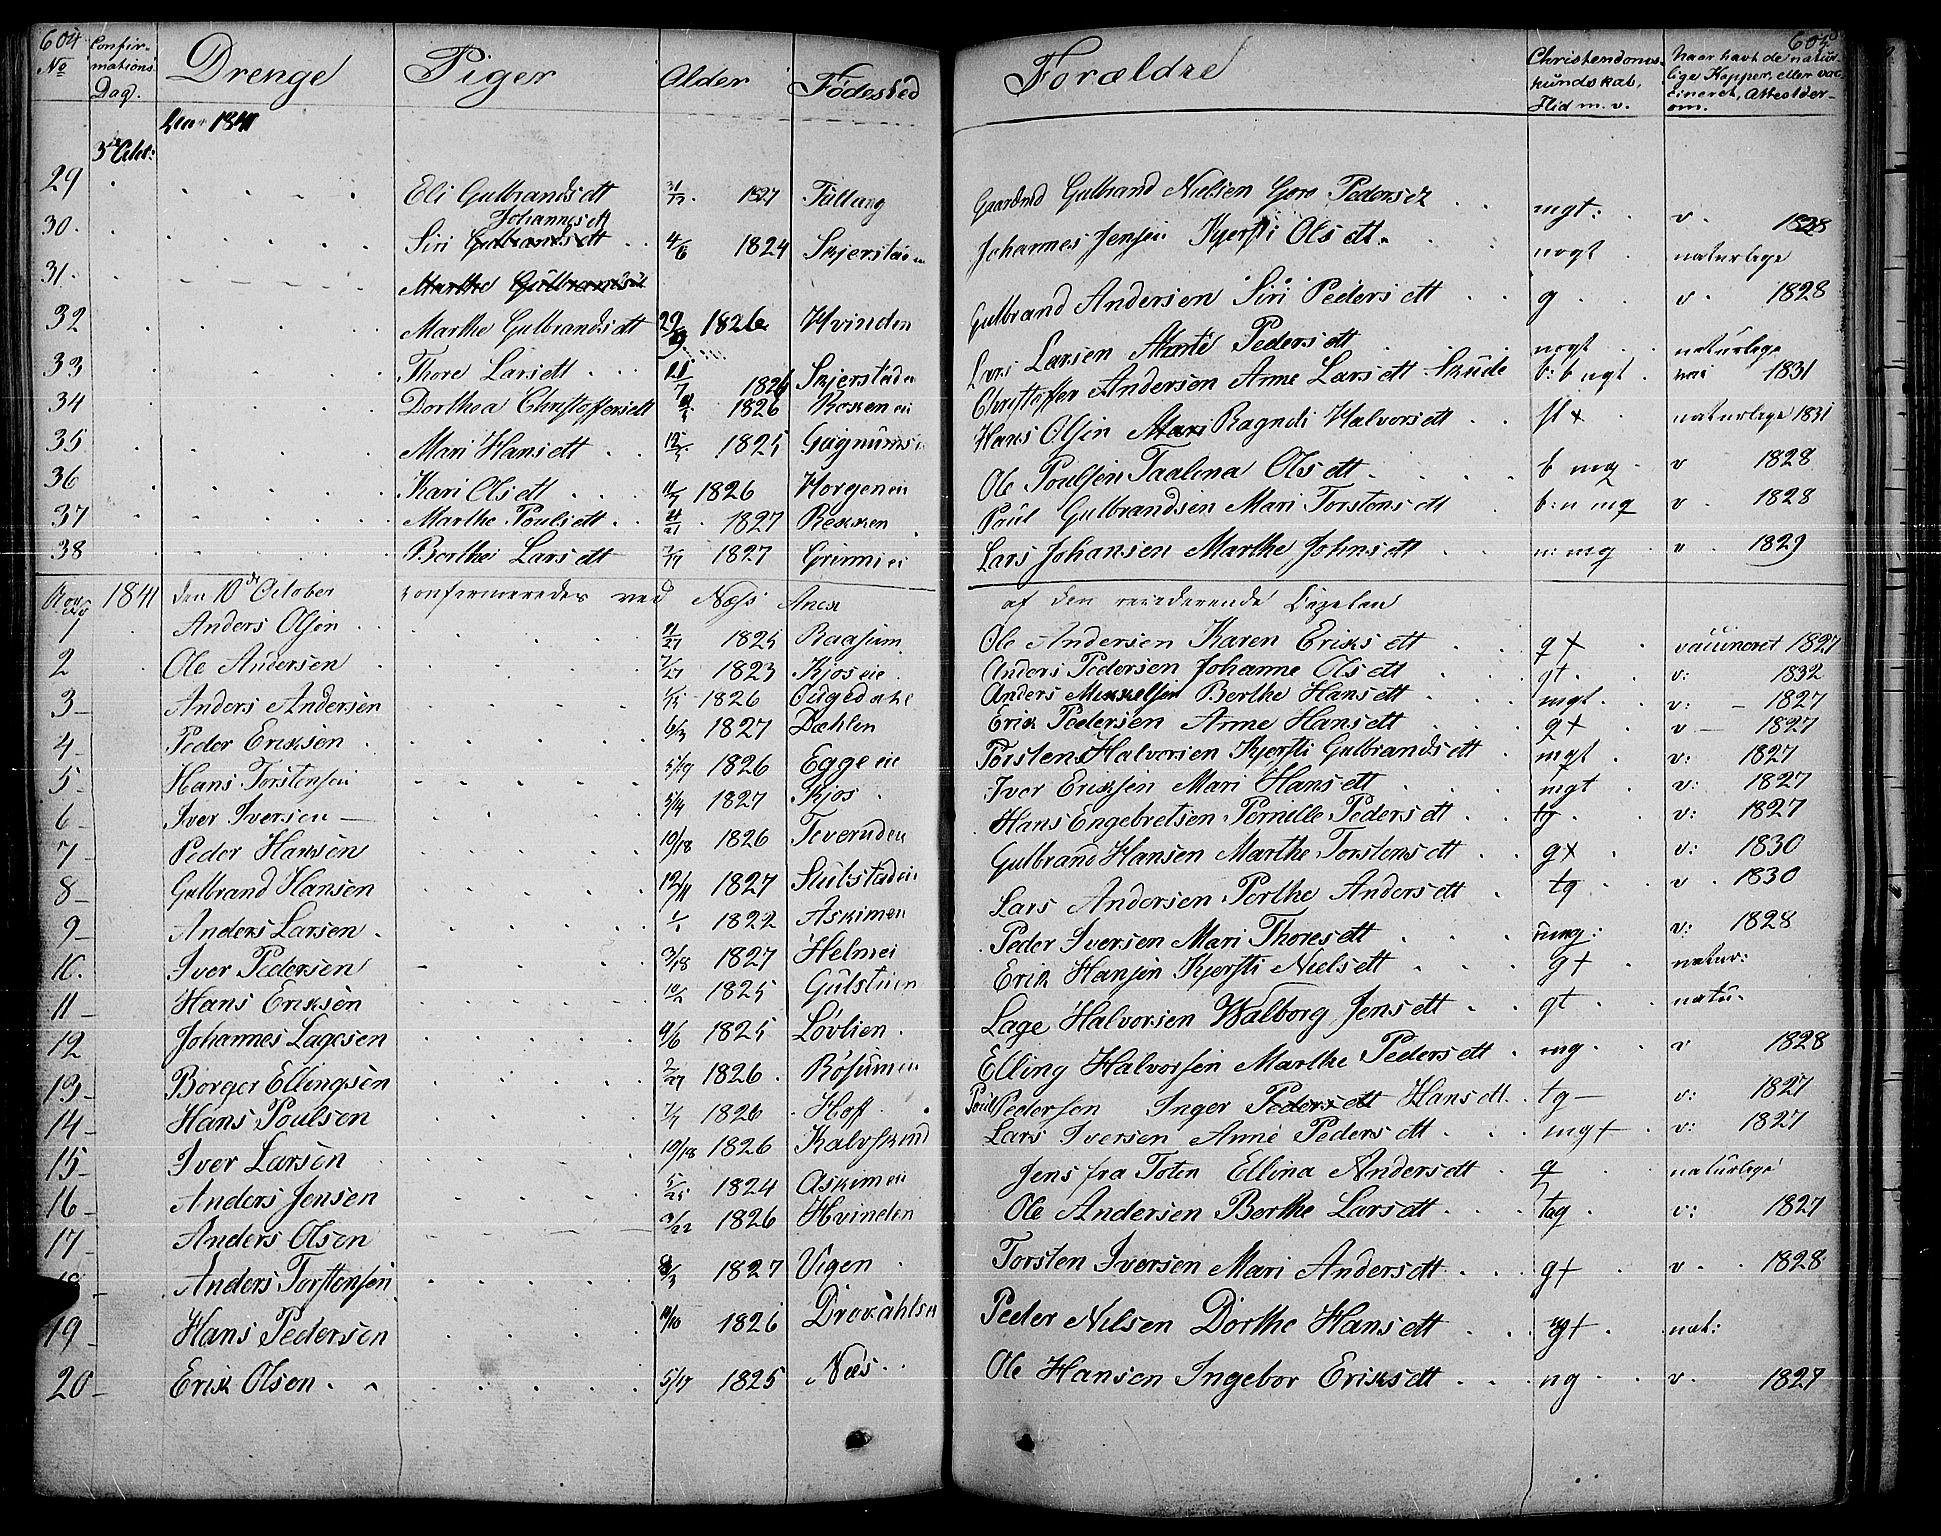 604
605
No Confirmations Dag. Drenge Piger Alder Födested Forældre Christendomskundskab, Flid m. v. Naar havt de naturlige Kopper, eller vaccineret, Attest derom.
1841
3die Octbr:
29 Eli Gulbrandsdtt 1827 Gulbrand Nielsen Goro Pedersd mgt: v. 1828
30. Siri Gulbrandsdtt Johannesdtt 4/6 1824 Johannes Jensen Kjersti Olsdtt. nogt naturlige
31. Marthe Gulbrandsdtt
32 Marthe Gulbrandsdtt 29/9 1826 Hvinden Gulbrand Andersen Siri Pedersdtt g v. 1828
33 Thore Larsdtt 1826 Larsen Pedersdtt nogt naturlige
34 Dorthea Christoffersdtt 1826 Christoffer Andersen Anne Larsdtt 1831
35 Mari Hansdtt 1825 Hans Olsen Mari Ragndi Halvorsdtt naturlige 1831
36 Kari Olsdtt 1826 Horgenei Ole Poulsen Taalena Olsdtt b mg v 1828
37 Marthe Poulsdtt 1827 Rekken Paul Gulbrandsen Mari Torstensdtt b:n mg v. 1828
38 Berthe Larsdtt 1827 Grinniei Lars Johansen Marthe Johnsdtt n: mg v 1829
1841 den 10de October confirmeredes ved Næss Anex af den residerende Capelan
1 Anders Olsen 11/27 1825 Raasum Ole Andersen Karen Eriksdtt g+ vaccineret 1827
2 Ole Andersen 1823 Kjoseie Anders Pedersen Johanne Olsdtt gt. v: 1832
3 Anders Andersen 1826 Anders Mikkelsen Berthe Hansdtt mgt. v: 1827
4 Peder Eriksen 6/3 1827 Dæhlen Erik Pedersen Anne Hansdtt g+ v 1827
5 Hans Torstensen 5/19 1826 Eggeeie Torsten Halvorsen Kjersti Gulbrandsdtt mgt v: 1827
6 Iver Iversen 5/14 1827 Kjos Iver Eriksen Mari Hansdtt mgt v: 1827
7 Peder Hansen 10/18 1826 Teveruden Hans Engebretsen Pernille Pedersdtt tg. v: 1827
8 Gulbrand Hansen 12/11 1827 Gulbrand Hansen Marthe Torstensdtt g+ v: 1830
9 Anders Larsen 1/1 1822 Askimen Lars Andersen Berthe Andersdtt tg v. 1830
10. Iver Pedersen 3/18 1827 Helmei Peder Iversen Mari Thoresdtt v: 1828
11 Hans Eriksen 10/2 1825 Gulstuen Erik Hansen Kjersti Nielsdtt g+ natur:
12 Johannes Lagesen 9/6 1825 Lövlien Lage Halvorsen Walborg Jensdtt gt natu.
13 Borger Ellingsen 2/27 1826 Rösumen Elling Halvorsen Marthe Pedersdtt mg v 1828
14 Hans Poulsen 7/7 1826 Hoff Poul Pedersen Inger Pedersdtt Hansdt tg v: 1827
15 Iver Larsen 10/18 1826 Kalvskind Lars Iversen Anne Pedersdtt mgt v: 1827
16 Anders Jensen 5/25 1824 Askimen Jens fra Toten Ellina Andersdtt g naturlige
17 Anders Olsen 1826 Hvinden Ole Andersen Berthe Larsdtt tag v: 1827
18 Anders Torstensen 1827 Vigen Torsten Iversen Mari Andersdtt g+ v. 1828
19 Hans Pedersen 1826 Peder Nilsen Dorthe Hansdtt nat:
20 Erik Olsen 5/17 1825 Næs Ole Hansen Ingebor Eriksdtt ng v. 1827